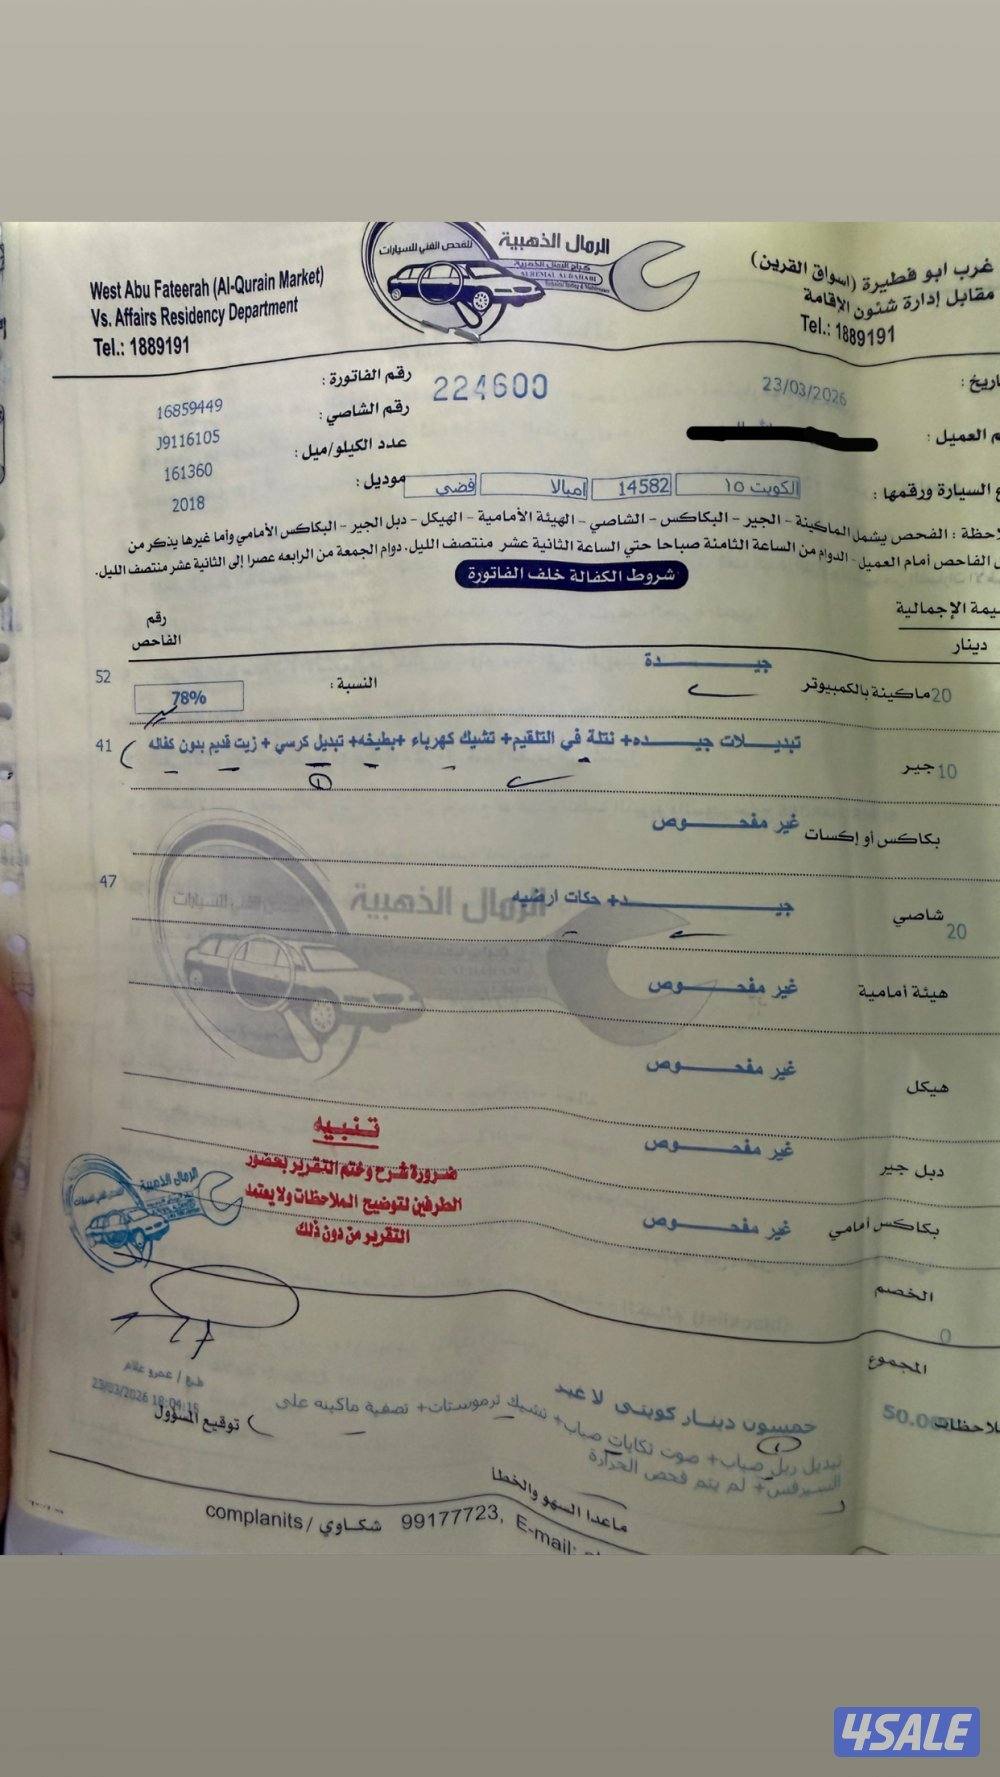 الرمال الذهبية
للفحص الفني للسيارات
كراج الرمال الذهبية
ALREMAL ALDAHABI
Technical Testing & Maintenance
West Abu Fateerah (Al-Qurain Market)
Vs. Affairs Residency Department
Tel.: 1889191
غرب ابو فطيرة (اسواق القرين)
مقابل إدارة شئون الإقامة
Tel.: 1889191
23/03/2026
224600
رقم الفاتورة :
16859449
العميل :
رقم الشاصي :
J9116105
عدد الكيلو/ميل :
161360
السيارة ورقمها :
الكويت ١٥
14582
امبالا
فضي
موديل :
2018
الفحص يشمل الماكينة - الجير - البكاكس - الشاصي - الهيئة الأمامية - الهيكل - دبل الجير - البكاكس الأمامي وأما غيرها يذكر من
الفاحص أمام العميل - الدوام من الساعة الثامنة صباحا حتي الساعة الثانية عشر منتصف الليل. دوام الجمعة من الرابعه عصرا إلى الثانية عشر منتصف الليل.
شروط الكفالة خلف الفاتورة
الإجمالية
دينار
رقم
الفاحص
20 ماكينة بالكمبيوتر
جيـــدة
النسبة :
78%
52
10 جير
تبديـــلات جيـــده+ نتلة في التلقيم+ تشيك كهرباء +بطيخه+ تبديل كرسي + زيت قديم بدون كفاله
41
بكاكس أو إكسات
غير مفحـــوص
شاصي
20
جيـــد+ حكات ارضيه
47
هيئة أمامية
غير مفحـــوص
هيكل
غير مفحـــوص
دبل جير
غير مفحـــوص
بكاكس أمامي
غير مفحـــوص
الرمال الذهبية
تنبيه
ضرورة شرح وختم التقرير بحضور
الطرفين لتوضيح الملاحظات ولا يعتمد
التقرير من دون ذلك
الرمال الذهبية
الخصم
0
المجموع
خمسون دينار كويتى لا غير
طبع / عمرو علام
23/03/2026 18:04:15
توقيع المسؤول
تبديل ربل صباب+ صوت تكايات صباب+ تشيك ثرموستات+ تصفية ماكينه على
السيرفس+ لم يتم فحص الحرارة
ماعدا السهو والخطا
complanits / شكاوي 99177723, E-mail:
4SALE